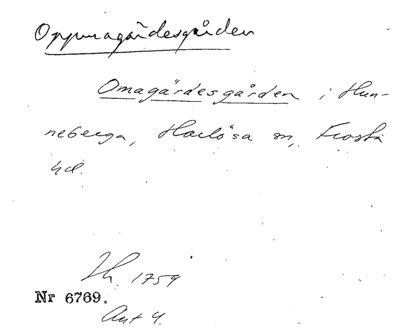 Oppmagärdesgården
Omagärdesgården i Hun-
neberga, Harlösa sn, Frosta
hd.
Jh. 1759
Nr 6769.
Ant 4.